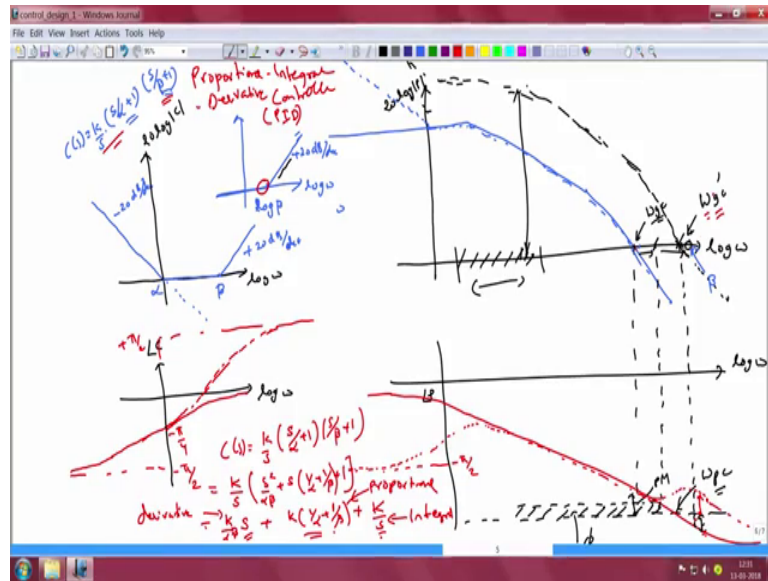 control_design_1 - Windows Journal
File Edit View Insert Actions Tools Help
Proportional-Integral
- Derivative Controller
(PID)
C(s) = K/s (s/α+1) (s/β+1)
20 log|C|
-20dB/dec
+20dB/dec
log β
log ω
ω
+20dB/dec
α
β
log ω
20 log|P|
ωgc
ωgc'
log ω
β
+π/2
∠C
log ω
-π/4
-π/2
C(s) = K/s (s/α+1) (s/β+1)
= K/s [s²/αβ + s(1/α+1/β)+1]
proportional
derivative → K/αβ s + K(1/α+1/β) + K/s ← Integral
log ω
∠P
-π/2
PM
ωpc
5
5/7
12:31
13-03-2018